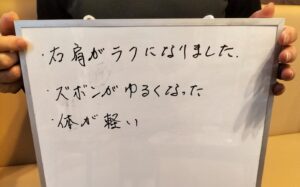 ・右肩がラクになりました.
・ズボンがゆるくなった
・体が軽い